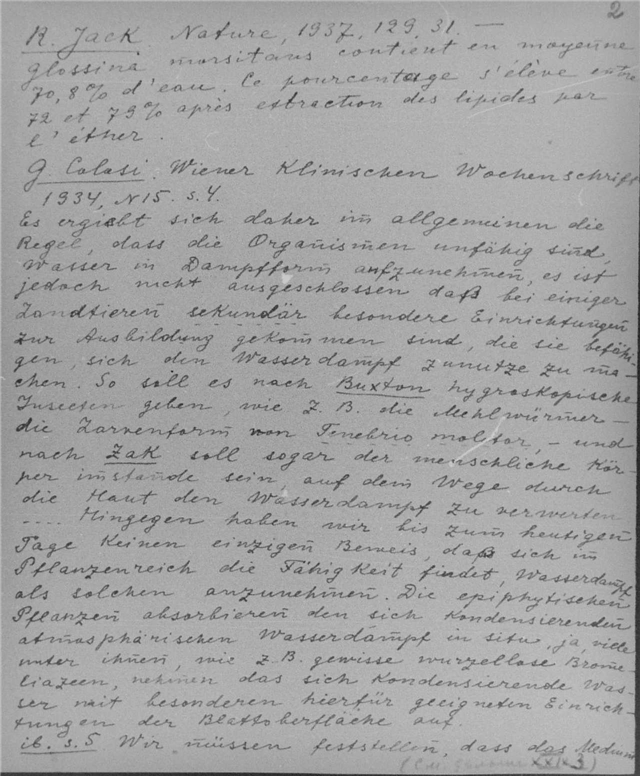 2
R. Jack. Nature, 1937, 129, 31. —
glossina morsitans contient en moyenne
70,8% d'eau. Ce pourcentage s'élève entre
72 et 79% après extraction des lipides par
l'éther.
G. Colosi. Wiener Klinischen Wochenschrift
1934, N15. s. 4.
Es ergiebt sich daher im allgemeinen die
Regel, dass die Organismen unfähig sind,
Wasser in Dampfform aufzunehmen, es ist
jedoch nicht ausgeschlossen daß bei einiger
Landtieren sekundär besondere Einrichtungen
zur Ausbildung gekommen sind, die sie befähi-
gen, sich den Wasserdampf zunutze zu ma-
chen. So soll es nach Buxton hygroskopische
Insecten geben, wie z. B. die Mehlwürmer –
die Larvenform von Tenebrio molitor, – und
nach Zak soll sogar der menschliche Kör-
per imstande sein, auf dem Wege durch
die Haut den Wasserdampf zu verwerten
.... Hingegen haben wir bis zum heutigen
Tage keinen einzigen Beweis, daß sich im
Pflanzenreich die Fähigkeit findet, Wasserdampf
als solchen anzunehmen. Die epiphytischen
Pflanzen absorbieren den sich kondensierenden
atmosphärischen Wasserdampf in situ, ja, viele
unter ihnen, wie z. B. gewisse wurzellose Brome-
liazeen, nehmen das sich kondensierende Was-
ser mit besonderen hierfür geeigneten Einrich-
tungen der Blattoberfläche auf.
ib. s. 5 Wir müssen feststellen, dass das Medium
(См. XXIX 3)